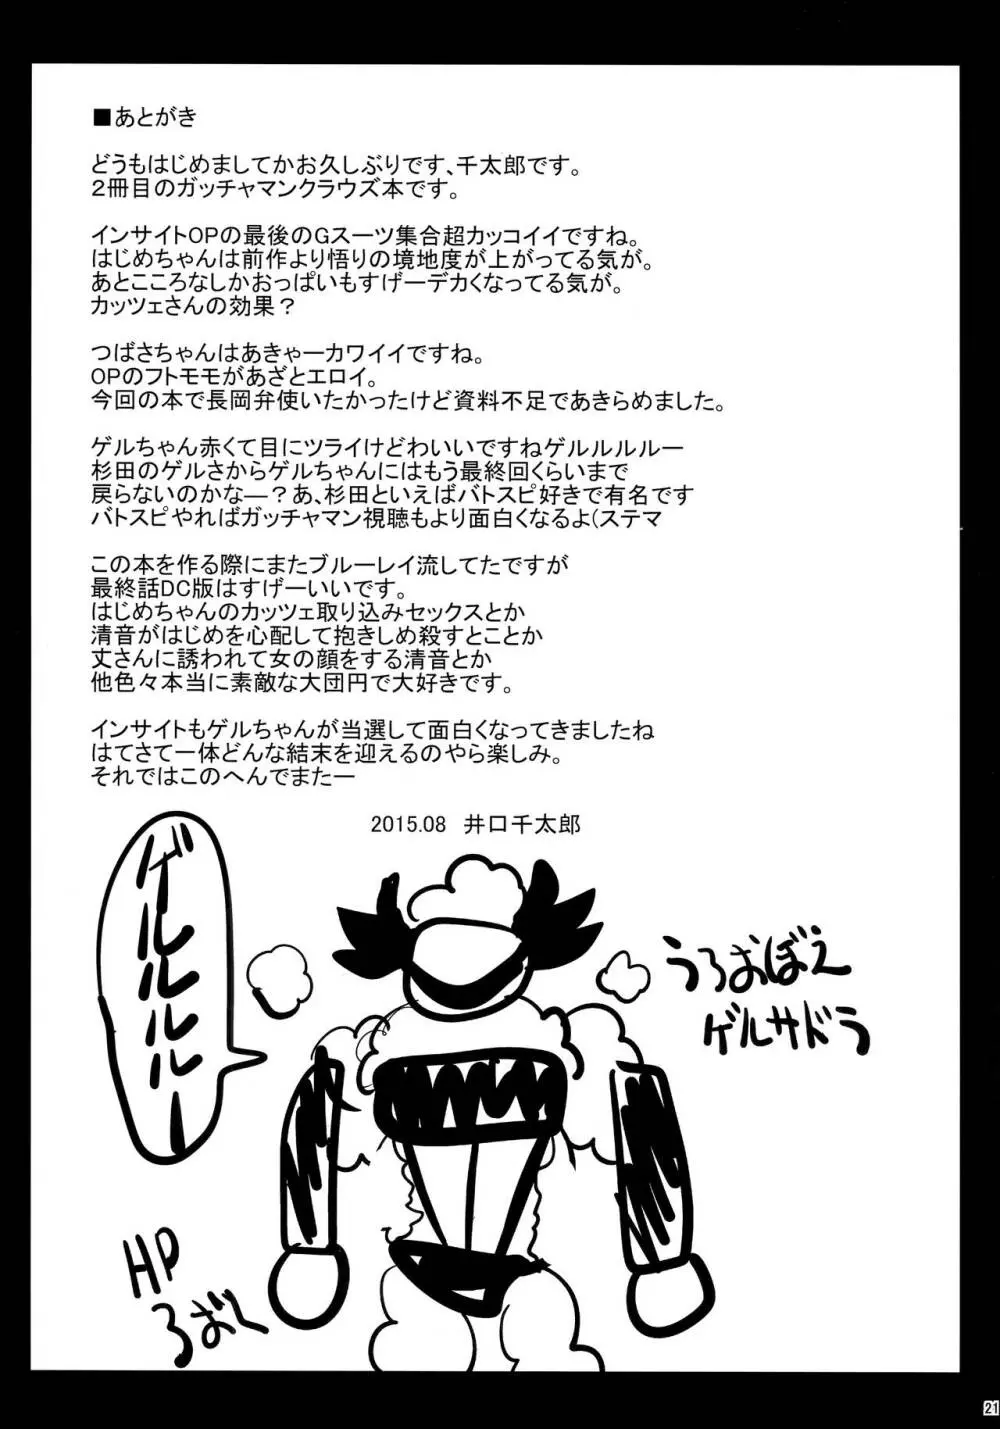 ■あとがき
どうもはじめましてかお久しぶりです、千太郎です。
２冊目のガッチャマンクラウズ本です。
インサイトOPの最後のGスーツ集合超カッコイイですね。
はじめちゃんは前作より悟りの境地度が上がってる気が。
あとこころなしかおっぱいもすげーデカくなってる気が。
カッツェさんの効果？
つばさちゃんはあきゃーカワイイですね。
OPのフトモモがあざとエロイ。
今回の本で長岡弁使いたかったけど資料不足であきらめました。
ゲルちゃん赤くて目にツライけどわいいですねゲルルルルー
杉田のゲルさからゲルちゃんにはもう最終回くらいまで
戻らないのかなー？あ、杉田といえばバトスピ好きで有名です
バトスピやればガッチャマン視聴もより面白くなるよ(ステマ
この本を作る際にまたブルーレイ流してたですが
最終話DC版はすげーいいです。
はじめちゃんのカッツェ取り込みセックスとか
清音がはじめを心配して抱きしめ殺すとことか
丈さんに誘われて女の顔をする清音とか
他色々本当に素敵な大団円で大好きです。
インサイトもゲルちゃんが当選して面白くなってきましたね
はてさて一体どんな結末を迎えるのやら楽しみ。
それではこのへんでまたー
2015.08　井口千太郎
ゲルルルルー
うろおぼえ
ゲルサドラ
HP
ろばく
21